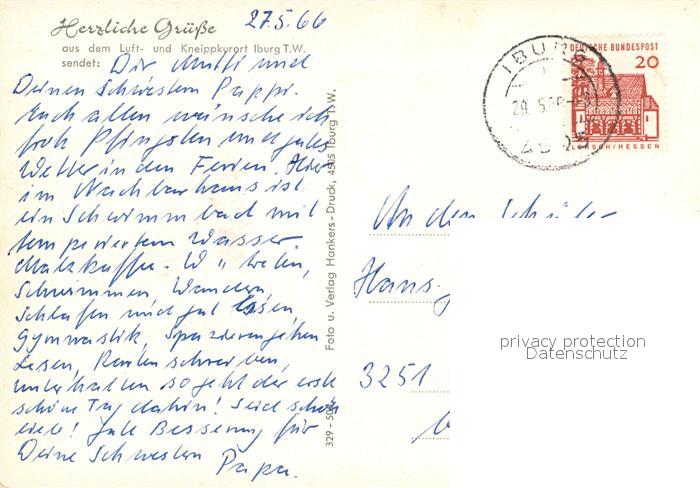 Herzliche Grüße
27.5.66
aus dem Luft- und Kneippkurort Iburg T.W.
sendet: Dir Mutti und
Deinen Schwestern Pappi.
Euch allen wünsche ich
froh Pfingsten und gutes
Wetter in den Ferien. Hier
im Nachbarhaus ist
ein Schwimmbad mit
temperiertem Wasser.
Malzkaffee.
Schwimmen, Wandern,
Schlafen und gut Essen,
Gymnastik, Spazierengehen
Lesen, Karten schreiben,
unterhalten so geht der erste
schöne Tag dahin! Seid schön
Gute Besserung für
Deine Schwestern
Papa.
329 - 
Foto u. Verlag Hankers-Druck, 4505 Iburg T.W.
IBURG
29. 5.66
DEUTSCHE BUNDESPOST
20
LORSCH/HESSEN
An den Schüler
Hans-
3251
privacy protection
Datenschutz